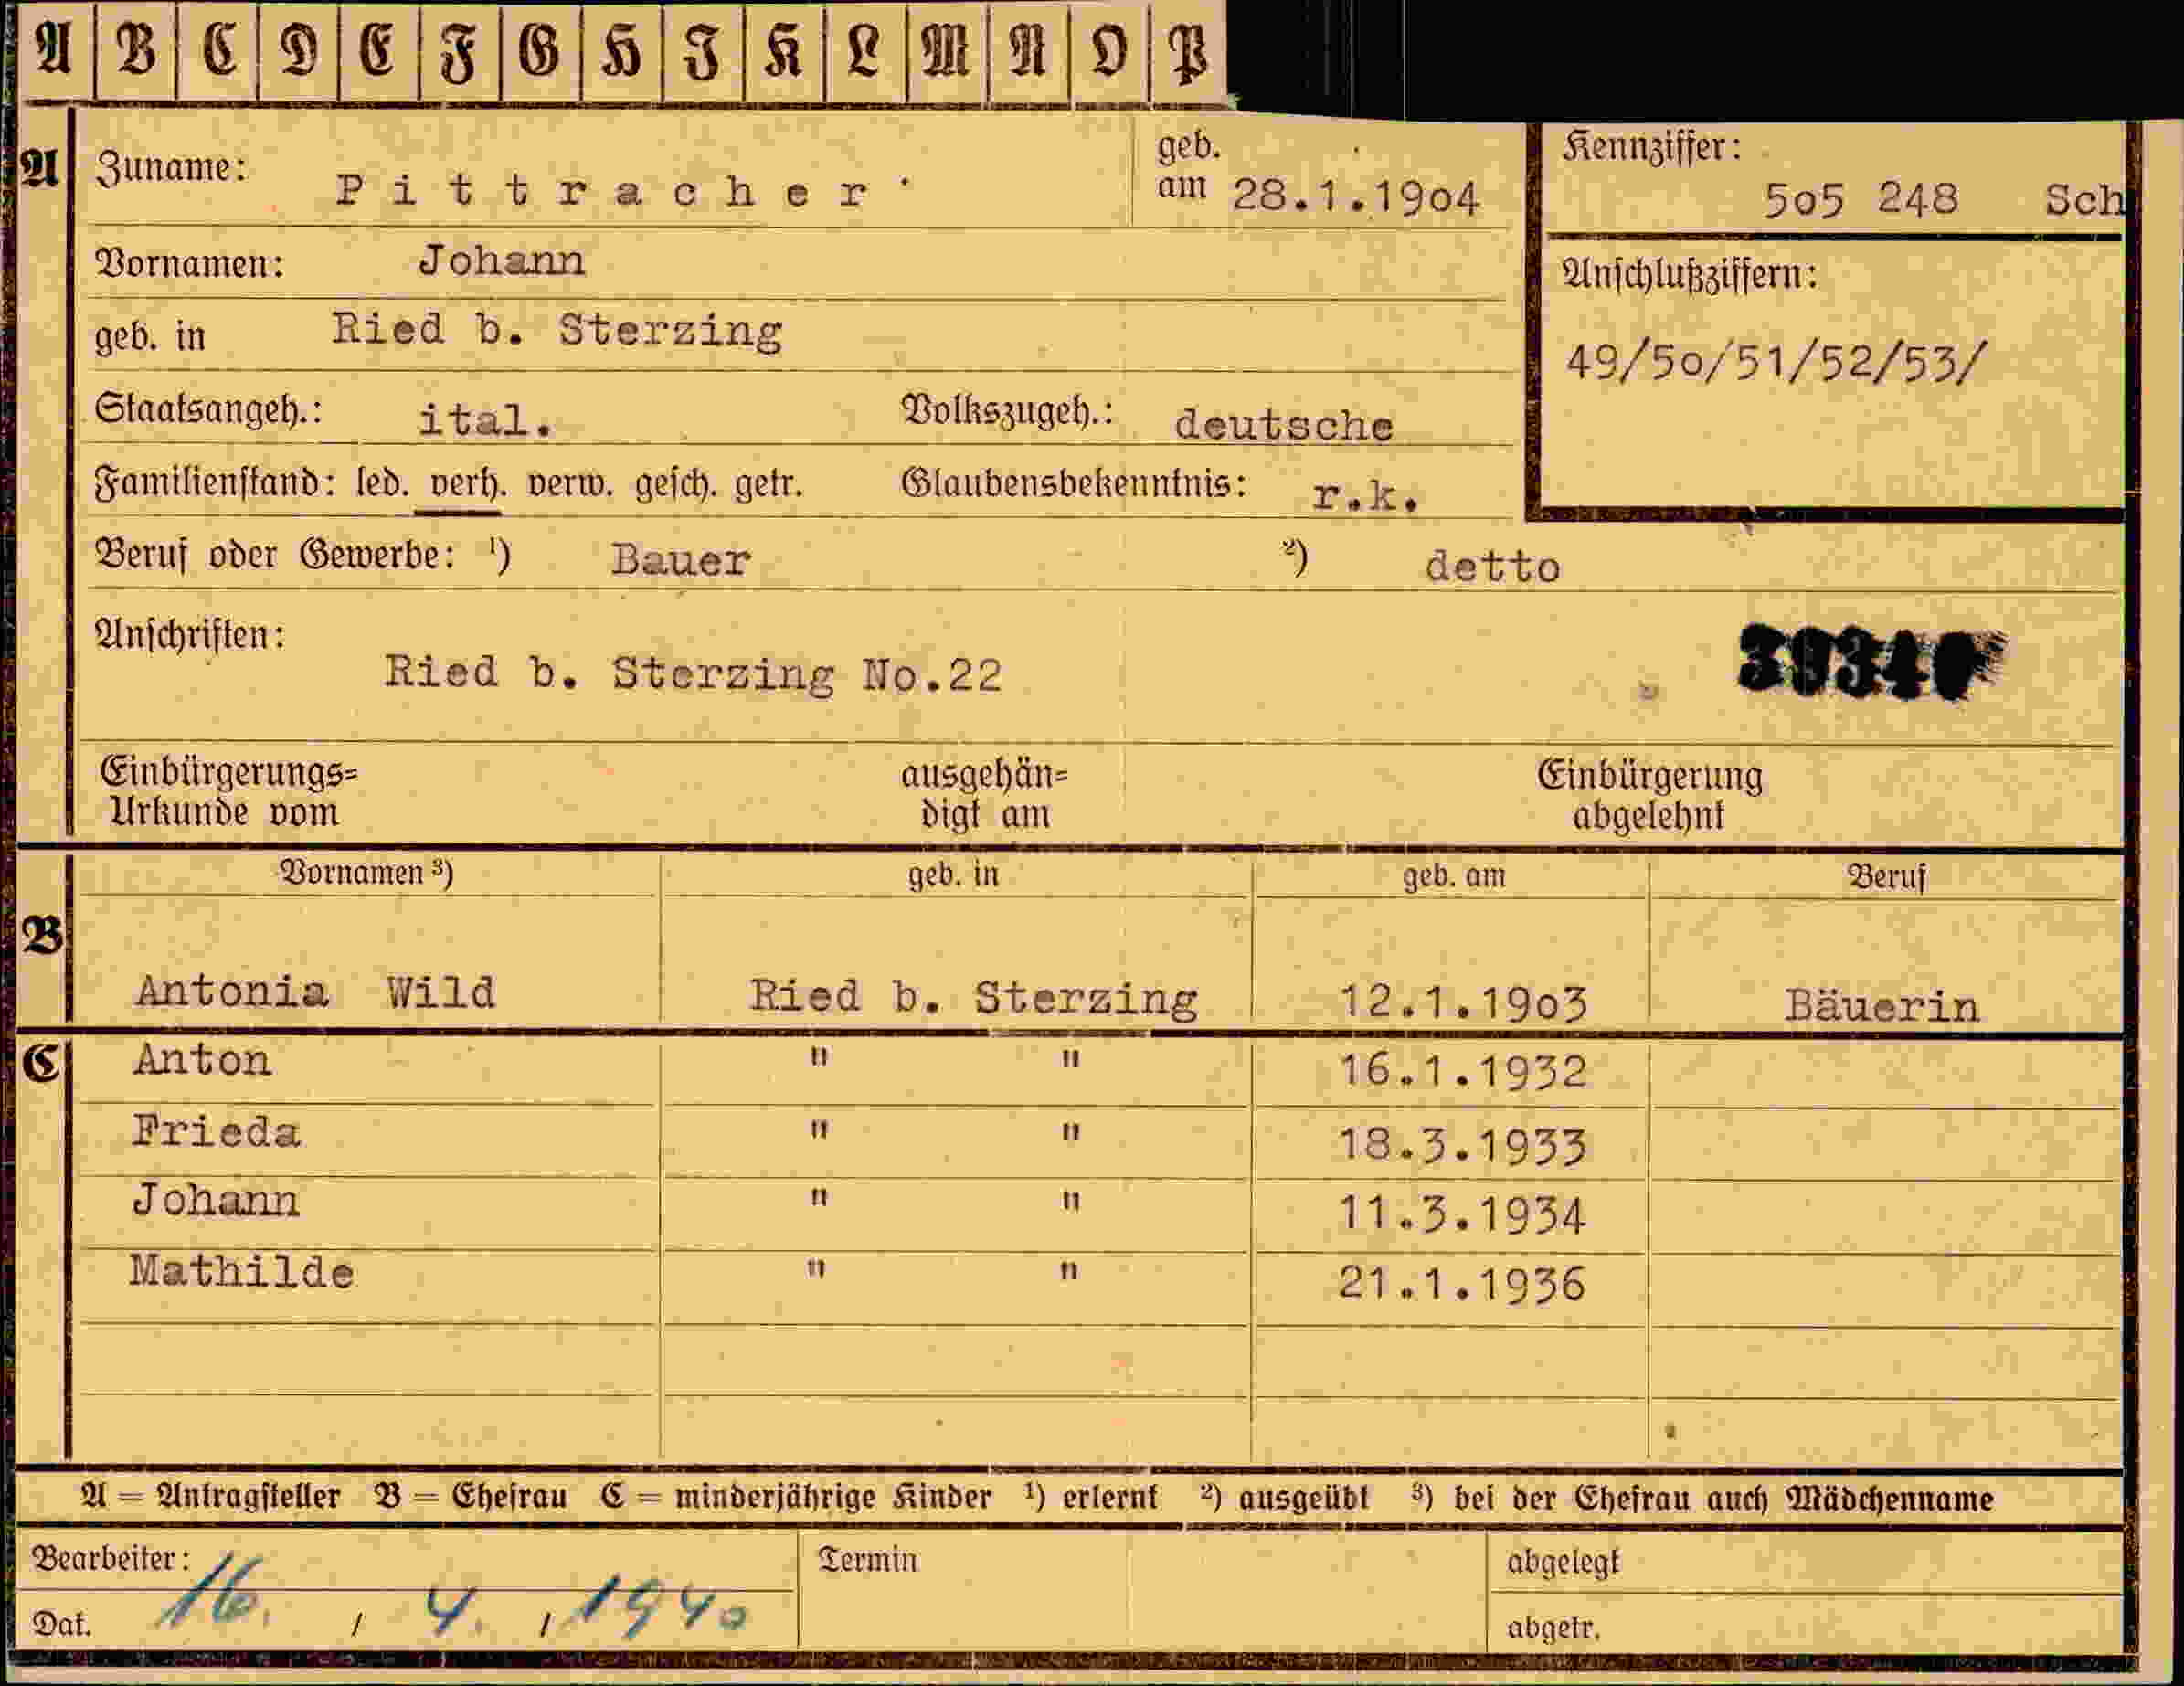 A B C D E F G H I K L M N O P
A Zuname: Pittracher geb. am 28.1.19o4 Kennziffer: 5o5 248 Sch
Vornamen: Johann Anschlußziffern:
geb. in Ried b. Sterzing 49/5o/51/52/53/
Staatsangeh.: ital. Volkszugeh.: deutsche
Familienstand: led. verh. verw. gesch. getr. Glaubensbekenntnis: r.k.
Beruf oder Gewerbe: ¹) Bauer ²) detto
Anschriften:
Ried b. Sterzing No.22
Einbürgerungs= ausgehän= Einbürgerung
Urkunde vom digt am abgelehnt
Vornamen ³) geb. in geb. am Beruf
B
Antonia Wild Ried b. Sterzing 12.1.19o3 Bäuerin
C Anton " " 16.1.1932
Frieda " " 18.3.1933
Johann " " 11.3.1934
Mathilde " " 21.1.1936
A = Antragsteller B = Ehefrau C = minderjährige Kinder ¹) erlernt ²) ausgeübt ³) bei der Ehefrau auch Mädchenname
Bearbeiter: Termin abgelegt
Dat. 16. / 4. / 1940 abgetr.